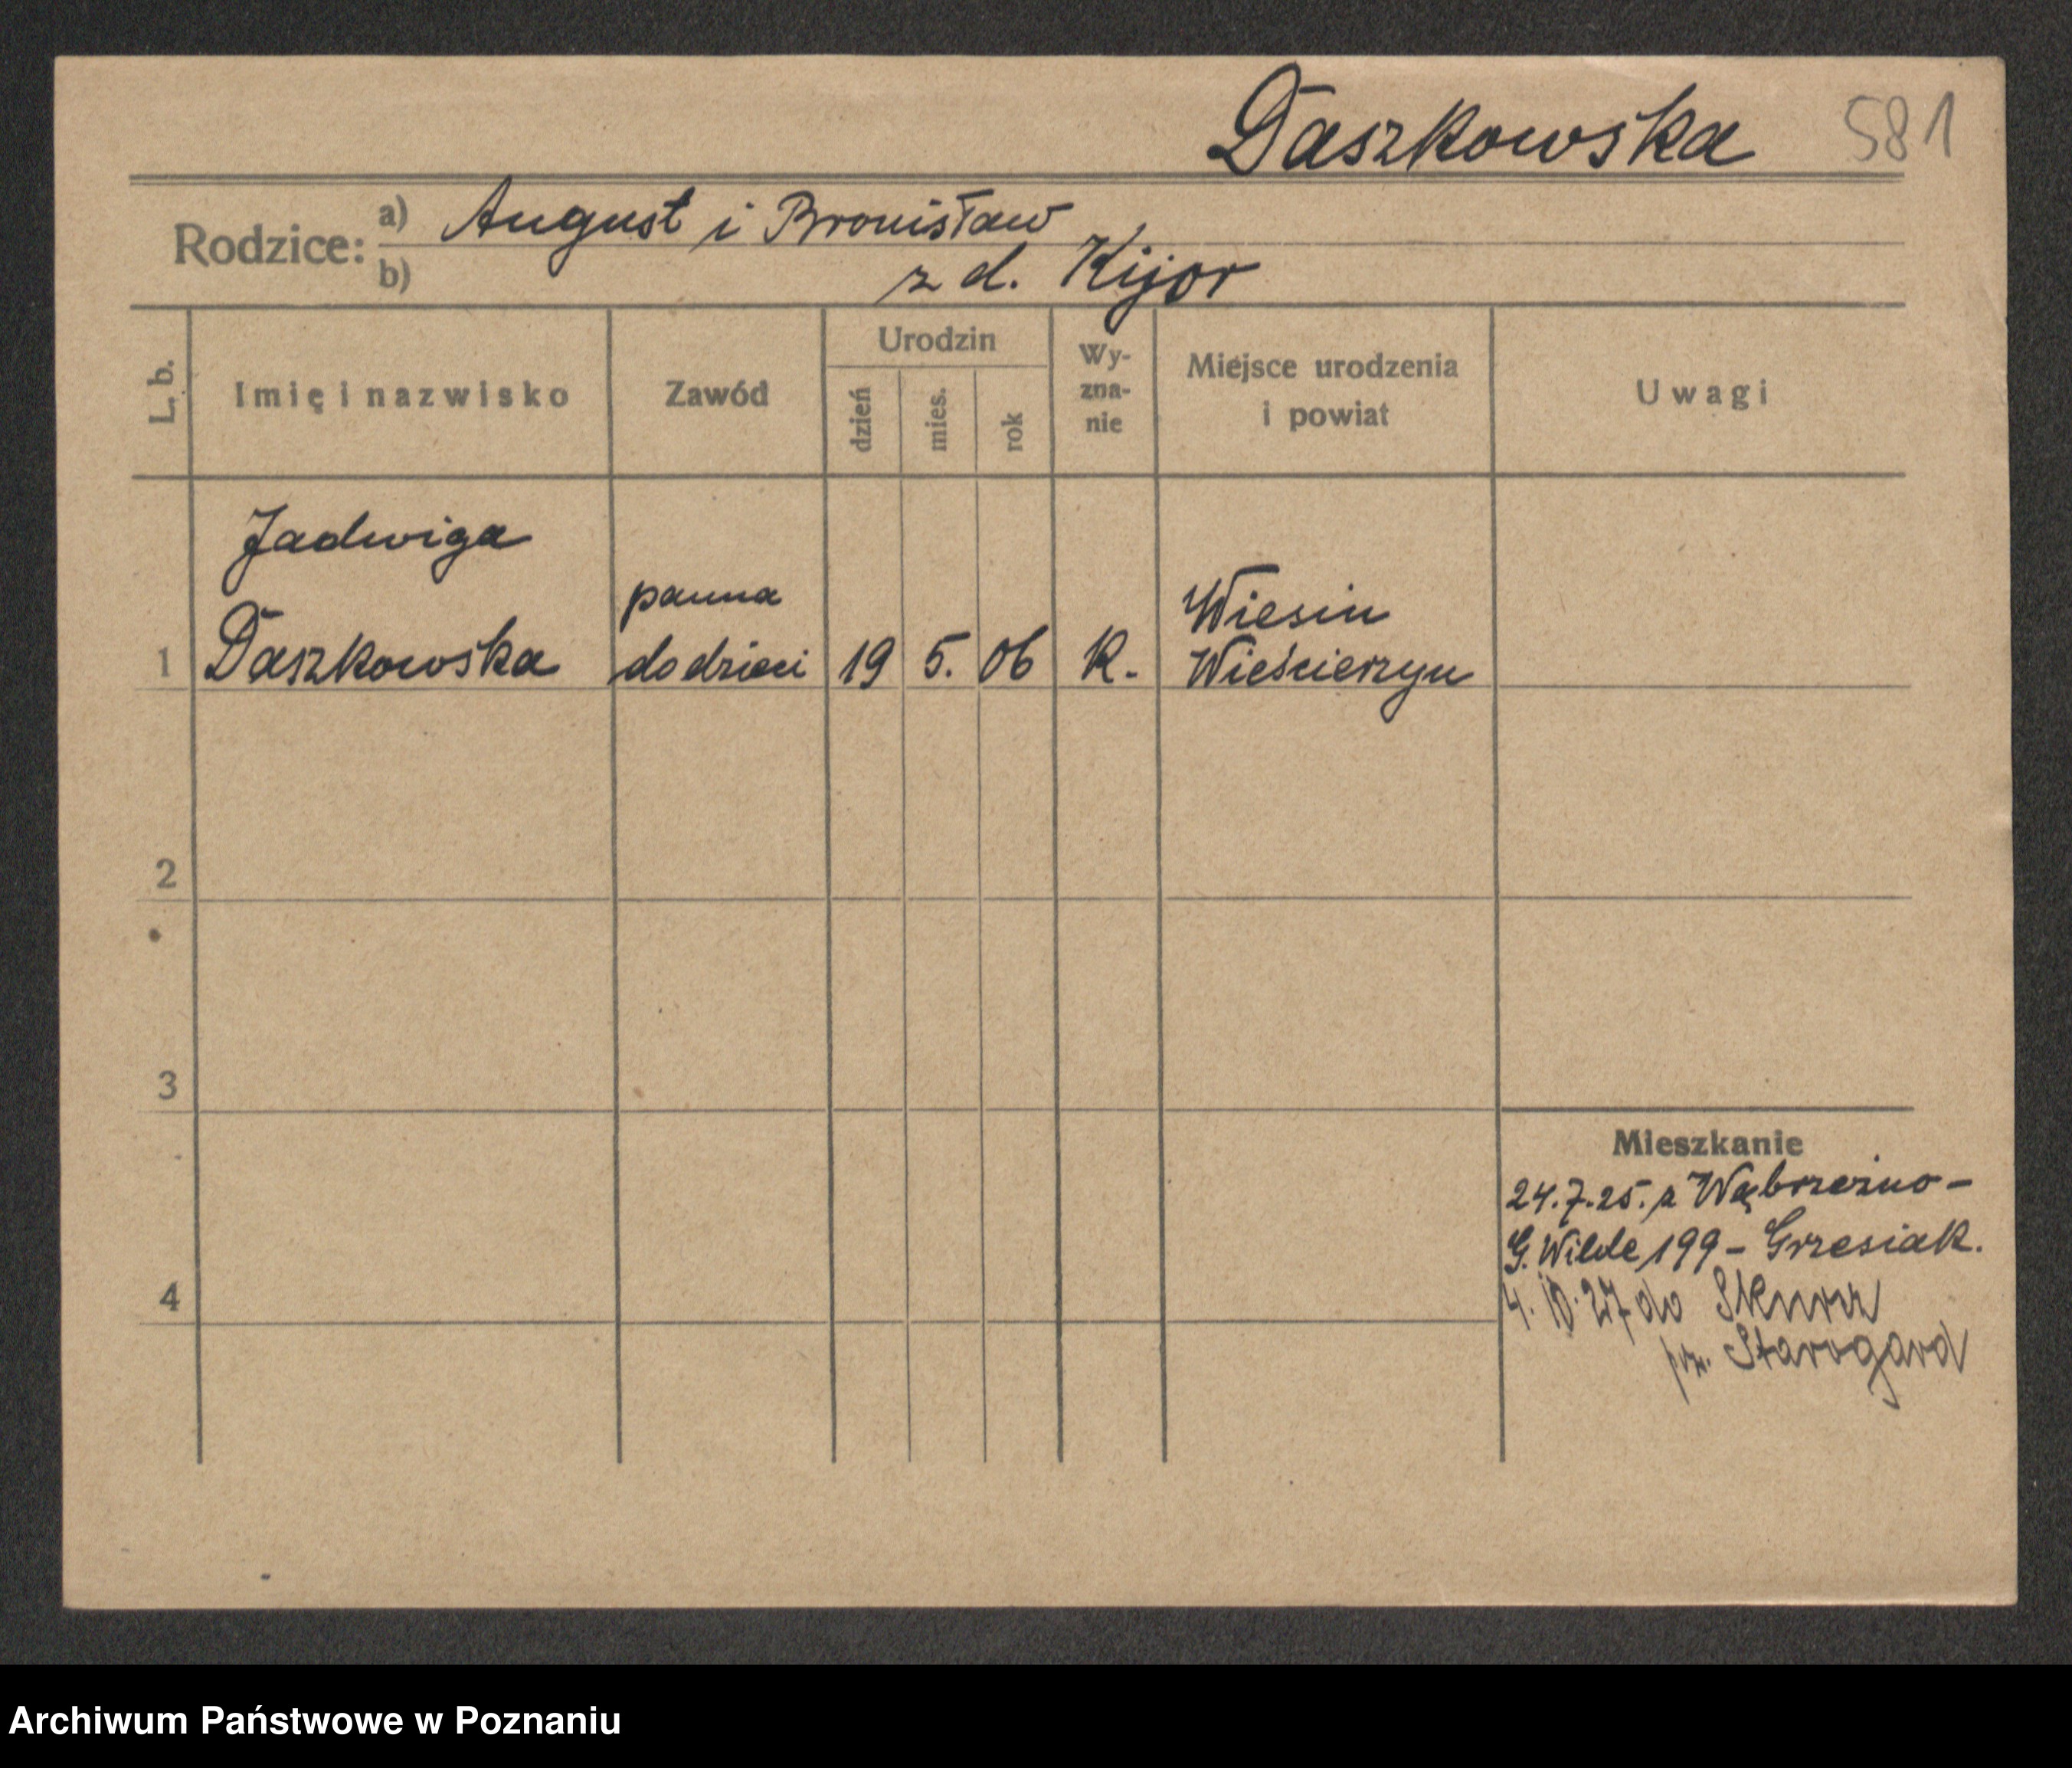 Daszkowska 581
Rodzice: a) August i Bronisław
b) z d. Kijor
L. b.
Imię i nazwisko
Zawód
Urodzin
dzień
mies.
rok
Wy-
zna-
nie
Miejsce urodzenia
i powiat
Uwagi
Jadwiga
Daszkowska
panna
do dzieci
1
19
5.
06
K.
Wiesin
Wieścierzyn
2
3
4
Mieszkanie
24.7.25. z Wąbrzeźno -
G. Wilde 199 - Grzesiak.
4.10.27 do Skurz
Starogard
Archiwum Państwowe w Poznaniu